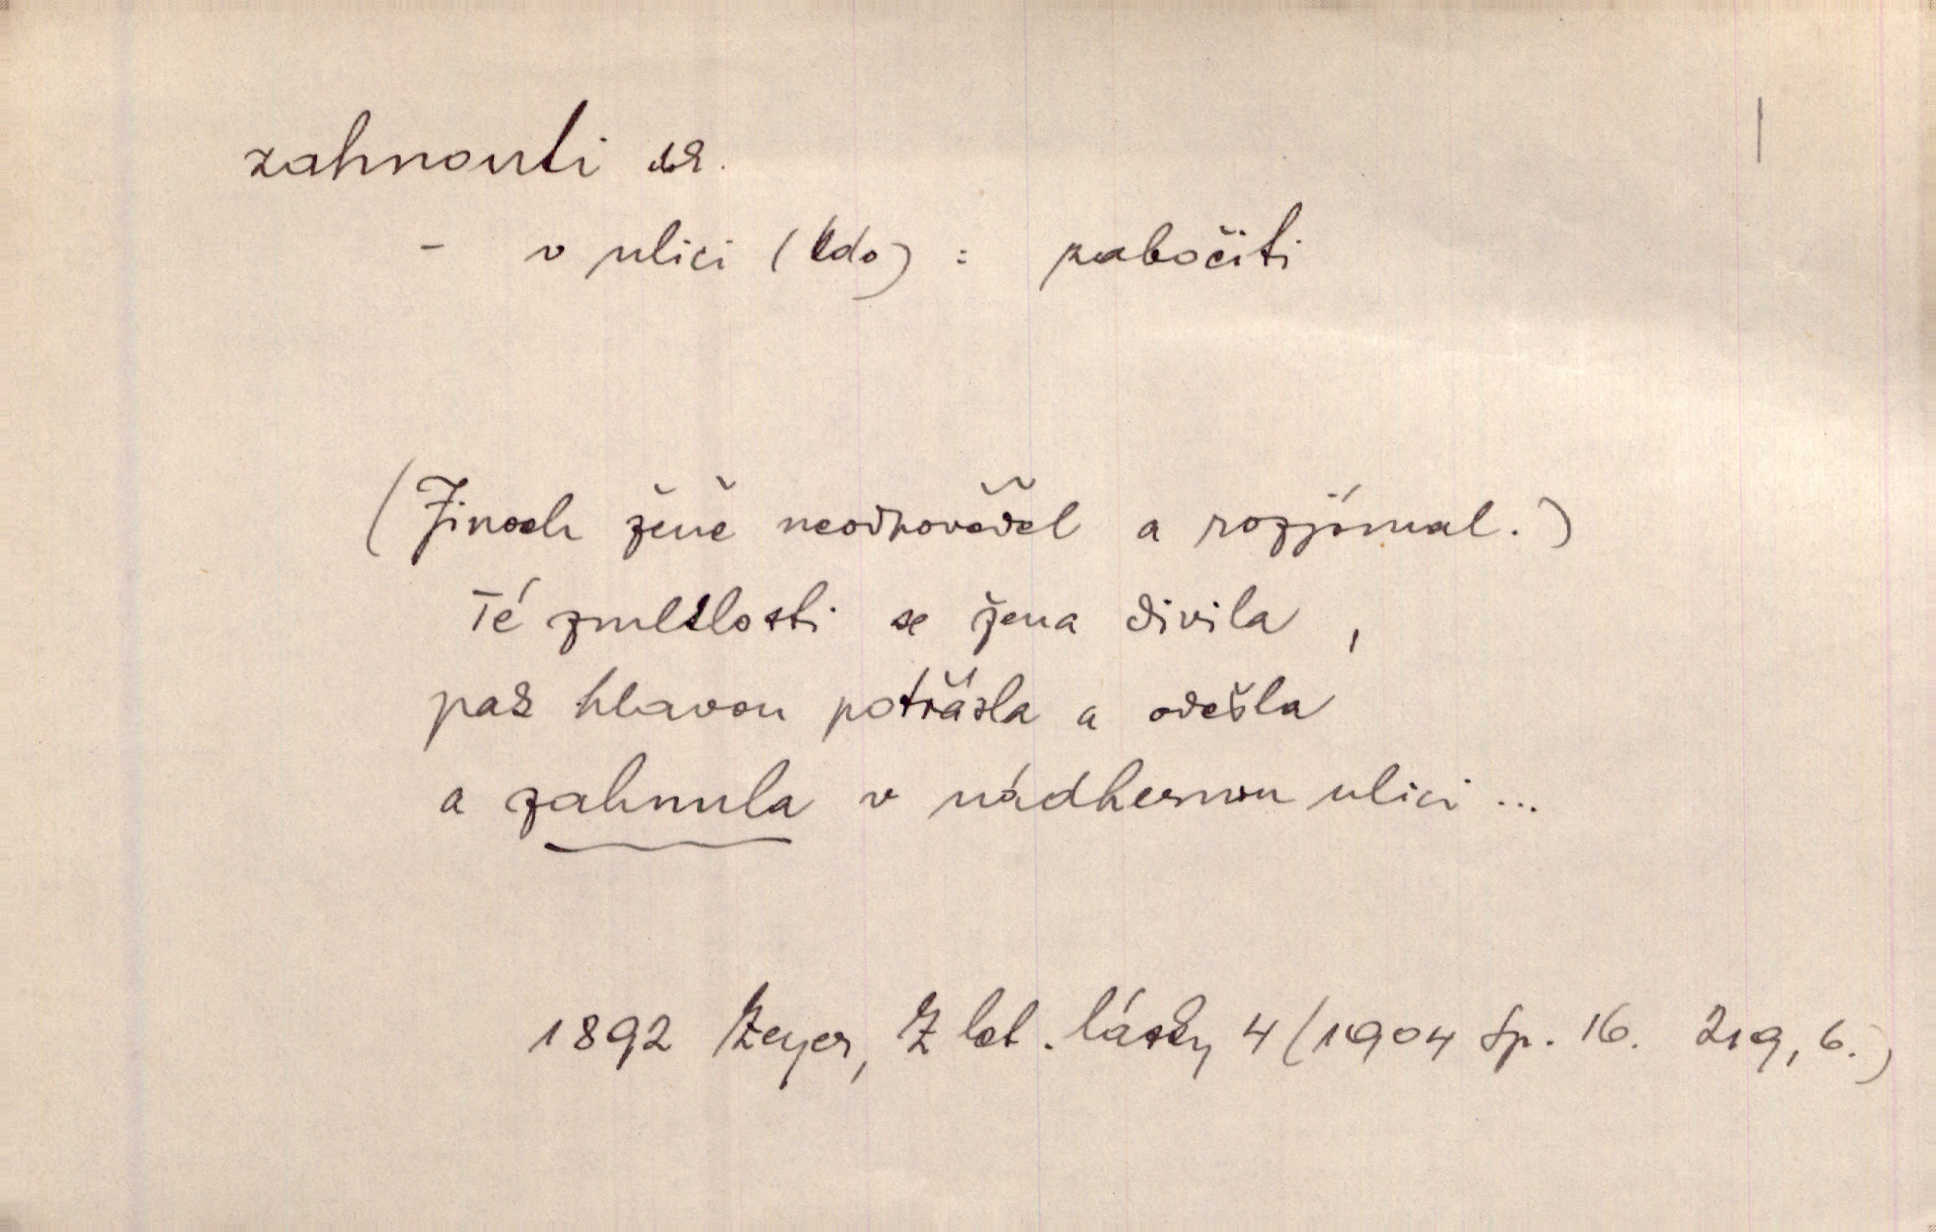 zahnouti dk.
- v ulici (kdo) : zabočiti
(Jinoch ženě neodpověděl a rozjímal.)
Té zmlklosti se žena divila,
pak hlavou potřásla a odešla
a zahnula v nádhernou ulici ...
1892 Zeyer, Z let. lásky 4 (1904 Sp. 16. 219, 6.)